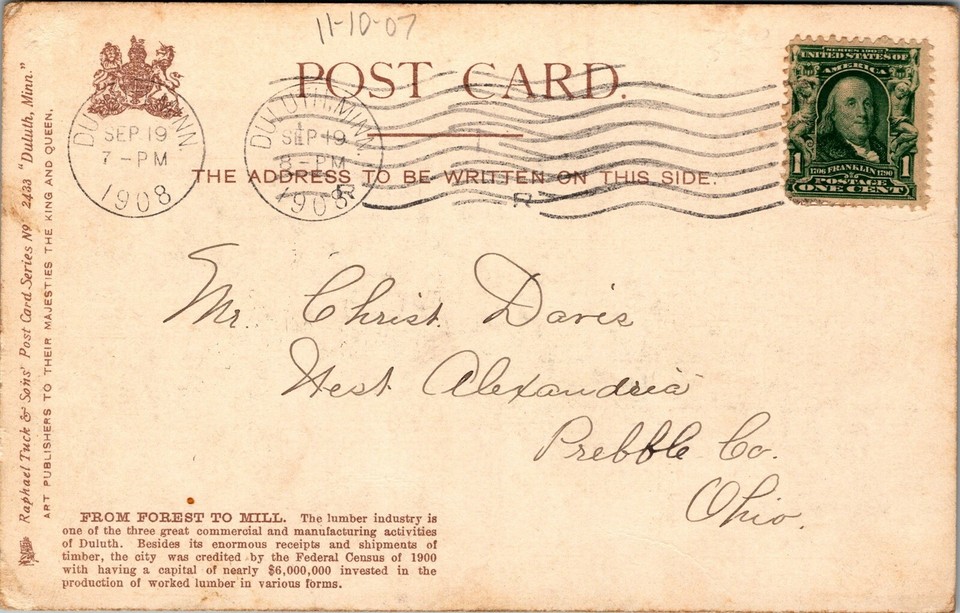 11-10-07
POST CARD.
DULUTH, MINN.
SEP 19
7-PM
1908
DULUTH, MINN.
SEP 19
8-PM
1908
R
R
SERIES 1902
UNITED STATES OF
AMERICA
1 1706 FRANKLIN 1790 1
POSTAGE
ONE CENT
THE ADDRESS TO BE WRITTEN ON THIS SIDE.
Mr. Christ. Davis
West Alexandria
Prebble Co.
Ohio.
Raphael Tuck & Sons' Post Card Series No. 2433 "Duluth, Minn."
ART PUBLISHERS TO THEIR MAJESTIES THE KING AND QUEEN.
FROM FOREST TO MILL. The lumber industry is
one of the three great commercial and manufacturing activities
of Duluth. Besides its enormous receipts and shipments of
timber, the city was credited by the Federal Census of 1900
with having a capital of nearly $6,000,000 invested in the
production of worked lumber in various forms.